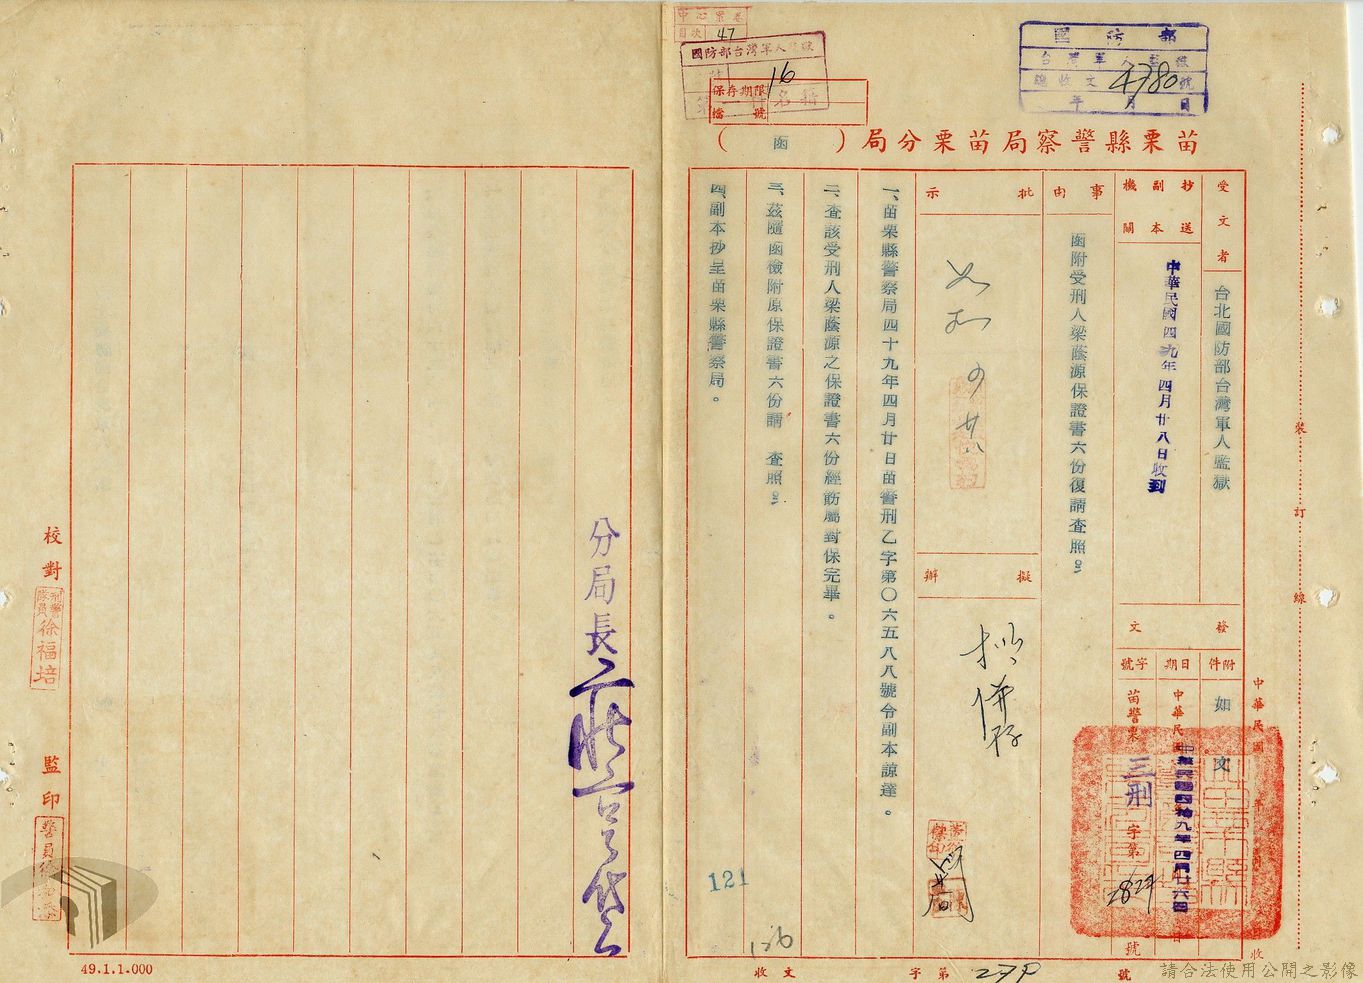 中心案卷
目次 47
國防部台灣軍人監獄
16
保存期限
檔號
國防部
台灣軍人監獄
總收文 4780 號
年 月 日
苗栗縣警察局苗栗分局（函）
受文者
台北國防部台灣軍人監獄
抄送副本機關
中華民國四九年四月廿八日收到
事由
函附受刑人梁蔭源保證書六份復請查照。
發文
附件 如文
日期 中華民國四拾九年四月廿六日
字號 苗警栗三刑字第2827號
中華民國 年 月 日收
批示
如和
擬辦
擬併存
一、苗栗縣警察局四十九年四月廿日苗警刑乙字第〇六五八八號令副本諒達。
二、查該受刑人梁蔭源之保證書六份經飭屬對保完畢。
三、茲隨函檢附原保證書六份請 查照。
四、副本抄呈苗栗縣警察局。
分局長
校對
刑警隊員徐福培
監印
121
126
收文 字第 號
裝 訂 線
49.1.1.000
請合法使用公開之影像